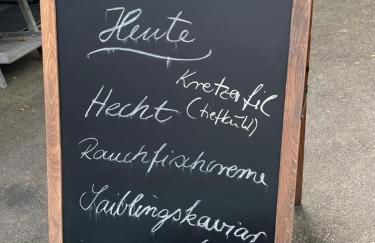 Heute
Kretzerfil
Hecht (tiefkühl)
Rauchfischcreme
Saiblingskaviar